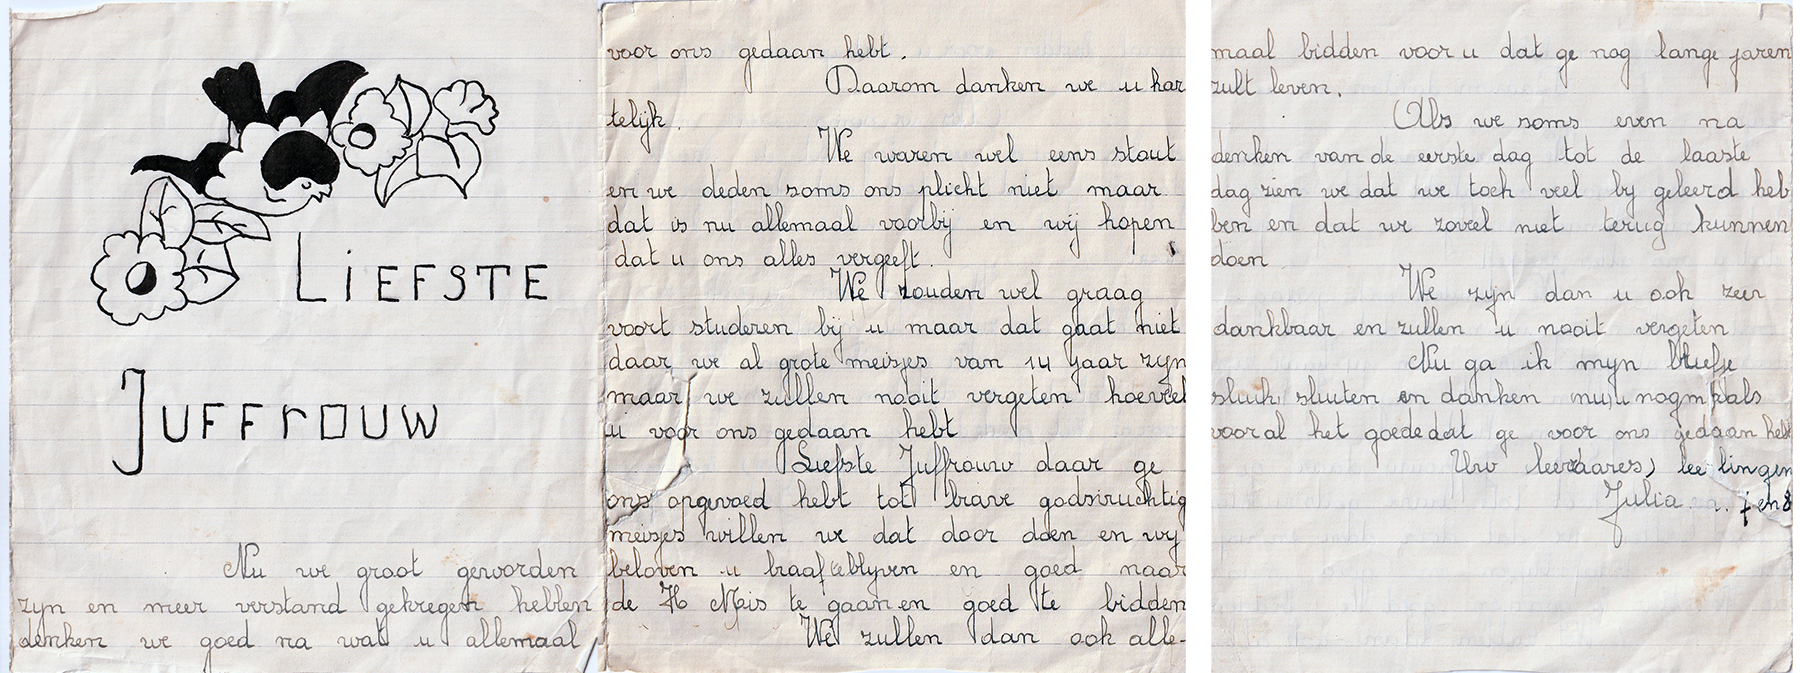 LIEFSTE
JUFFROUW
Nu we groot geworden
zyn en meer verstand gekregen hebben
denken we goed na wat u allemaal
voor ons gedaan hebt.
Daarom danken we u har
telijk.
We waren wel eens stout
en we deden soms ons plicht niet maar
dat is nu allemaal voorbij en wij hopen
dat u ons alles vergeeft.
We zouden wel graag
voort studeren bij u maar dat gaat niet
daar we al grote meisjes van 14 jaar zyn
maar we zullen nooit vergeten hoeveel
u voor ons gedaan hebt
Liefste Juffrouw daar ge
ons opgevoed hebt tot brave godsvruchtig
meisjes willen we dat door doen en wy
beloven u braaf te blyven en goed naar
de H Mis te gaan en goed te bidden
We zullen dan ook alle-
maal bidden voor u dat ge nog lange jaren
zult leven.
Als we soms even na
denken van de eerste dag tot de laaste
dag zien we dat we toch veel by geleerd heb
ben en dat we zoveel niet terug kunnen
doen
We zyn dan u ook zeer
dankbaar en zullen u nooit vergeten
Nu ga ik myn briefje
sluiten en danken u nogmaals
vooral het goede dat ge voor ons gedaan hebt
Uw leerlingen
Julia